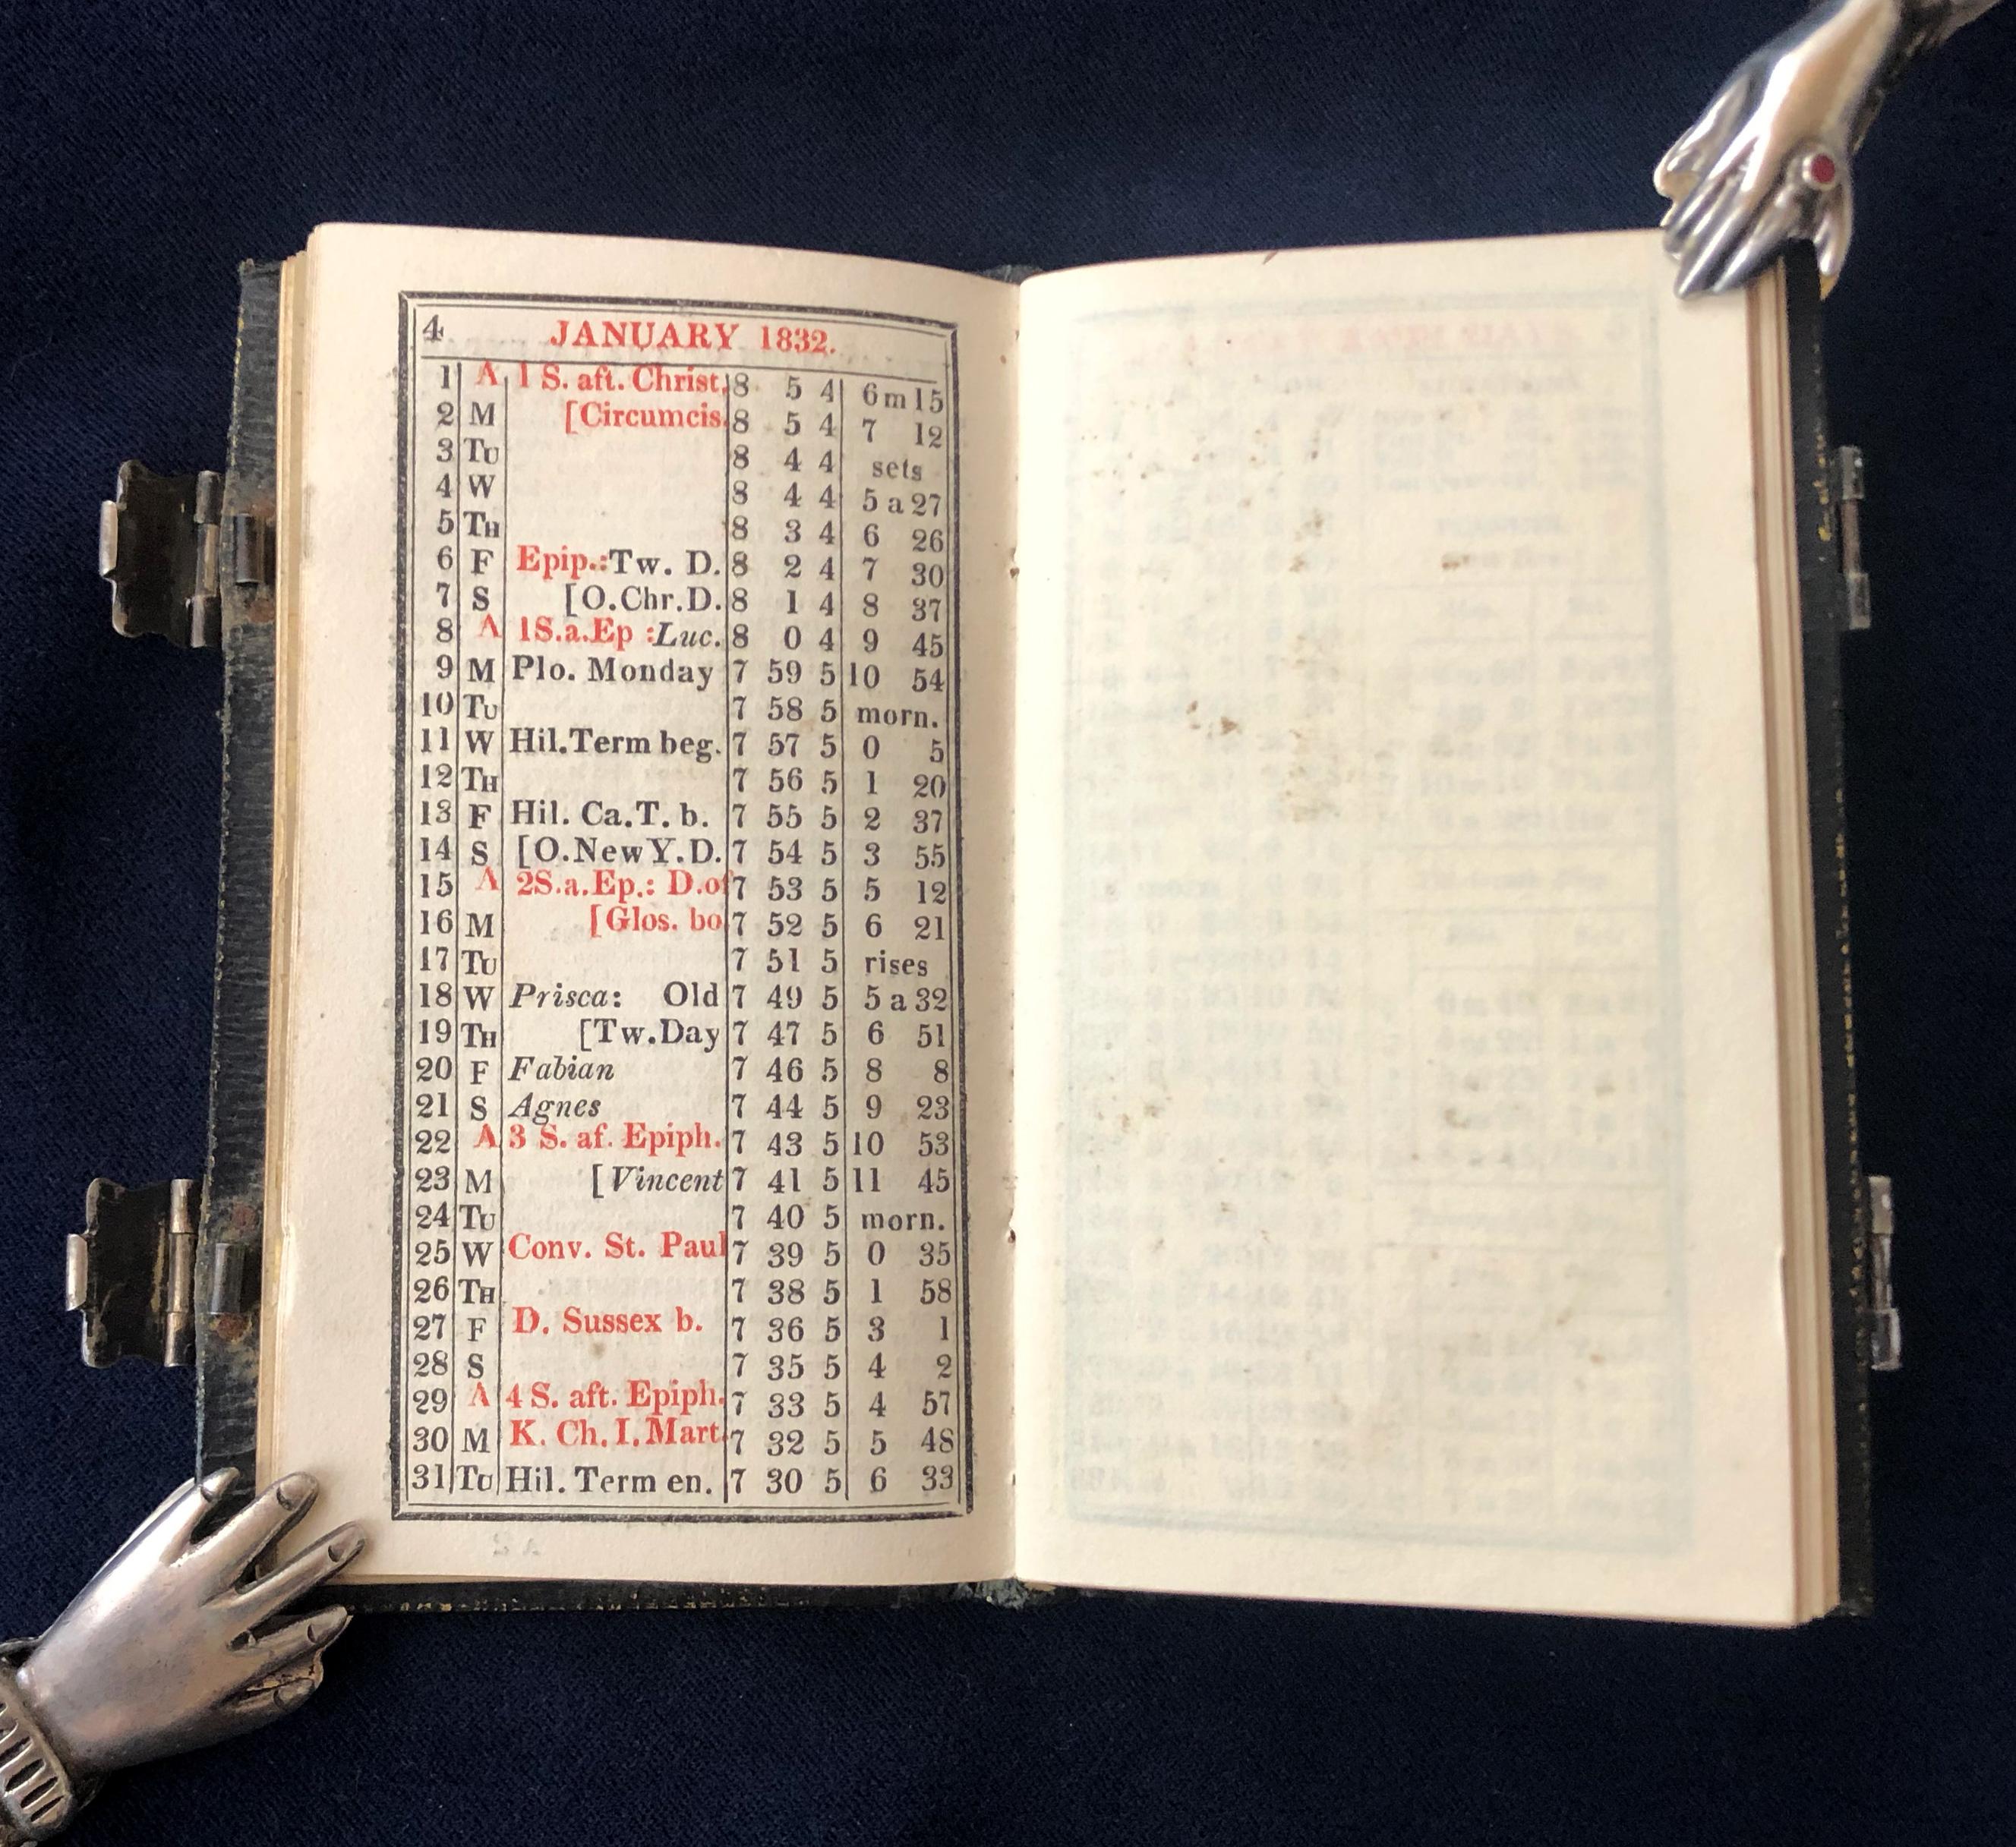 4 JANUARY 1832.
1 A 1 S. aft. Christ. 8 5 4 6 m 15
2 M [Circumcis. 8 5 4 7 12
3 TU 8 4 4 sets
4 W 8 4 4 5 a 27
5 TH 8 3 4 6 26
6 F Epip.: Tw. D. 8 2 4 7 30
7 S [O.Chr.D. 8 1 4 8 37
8 A 1S.a.Ep : Luc. 8 0 4 9 45
9 M Plo. Monday 7 59 5 10 54
10 TU 7 58 5 morn.
11 W Hil.Term beg. 7 57 5 0 5
12 TH 7 56 5 1 20
13 F Hil. Ca.T. b. 7 55 5 2 37
14 S [O.New Y.D. 7 54 5 3 55
15 A 2S.a.Ep.: D.of 7 53 5 5 12
16 M [Glos. bo 7 52 5 6 21
17 TU 7 51 5 rises
18 W Prisca: Old 7 49 5 5 a 32
19 TH [Tw.Day 7 47 5 6 51
20 F Fabian 7 46 5 8 8
21 S Agnes 7 44 5 9 23
22 A 3 S. af. Epiph. 7 43 5 10 53
23 M [Vincent 7 41 5 11 45
24 TU 7 40 5 morn.
25 W Conv. St. Paul 7 39 5 0 35
26 TH 7 38 5 1 58
27 F D. Sussex b. 7 36 5 3 1
28 S 7 35 5 4 2
29 A 4 S. aft. Epiph. 7 33 5 4 57
30 M K. Ch. I. Mart. 7 32 5 5 48
31 TU Hil. Term en. 7 30 5 6 33